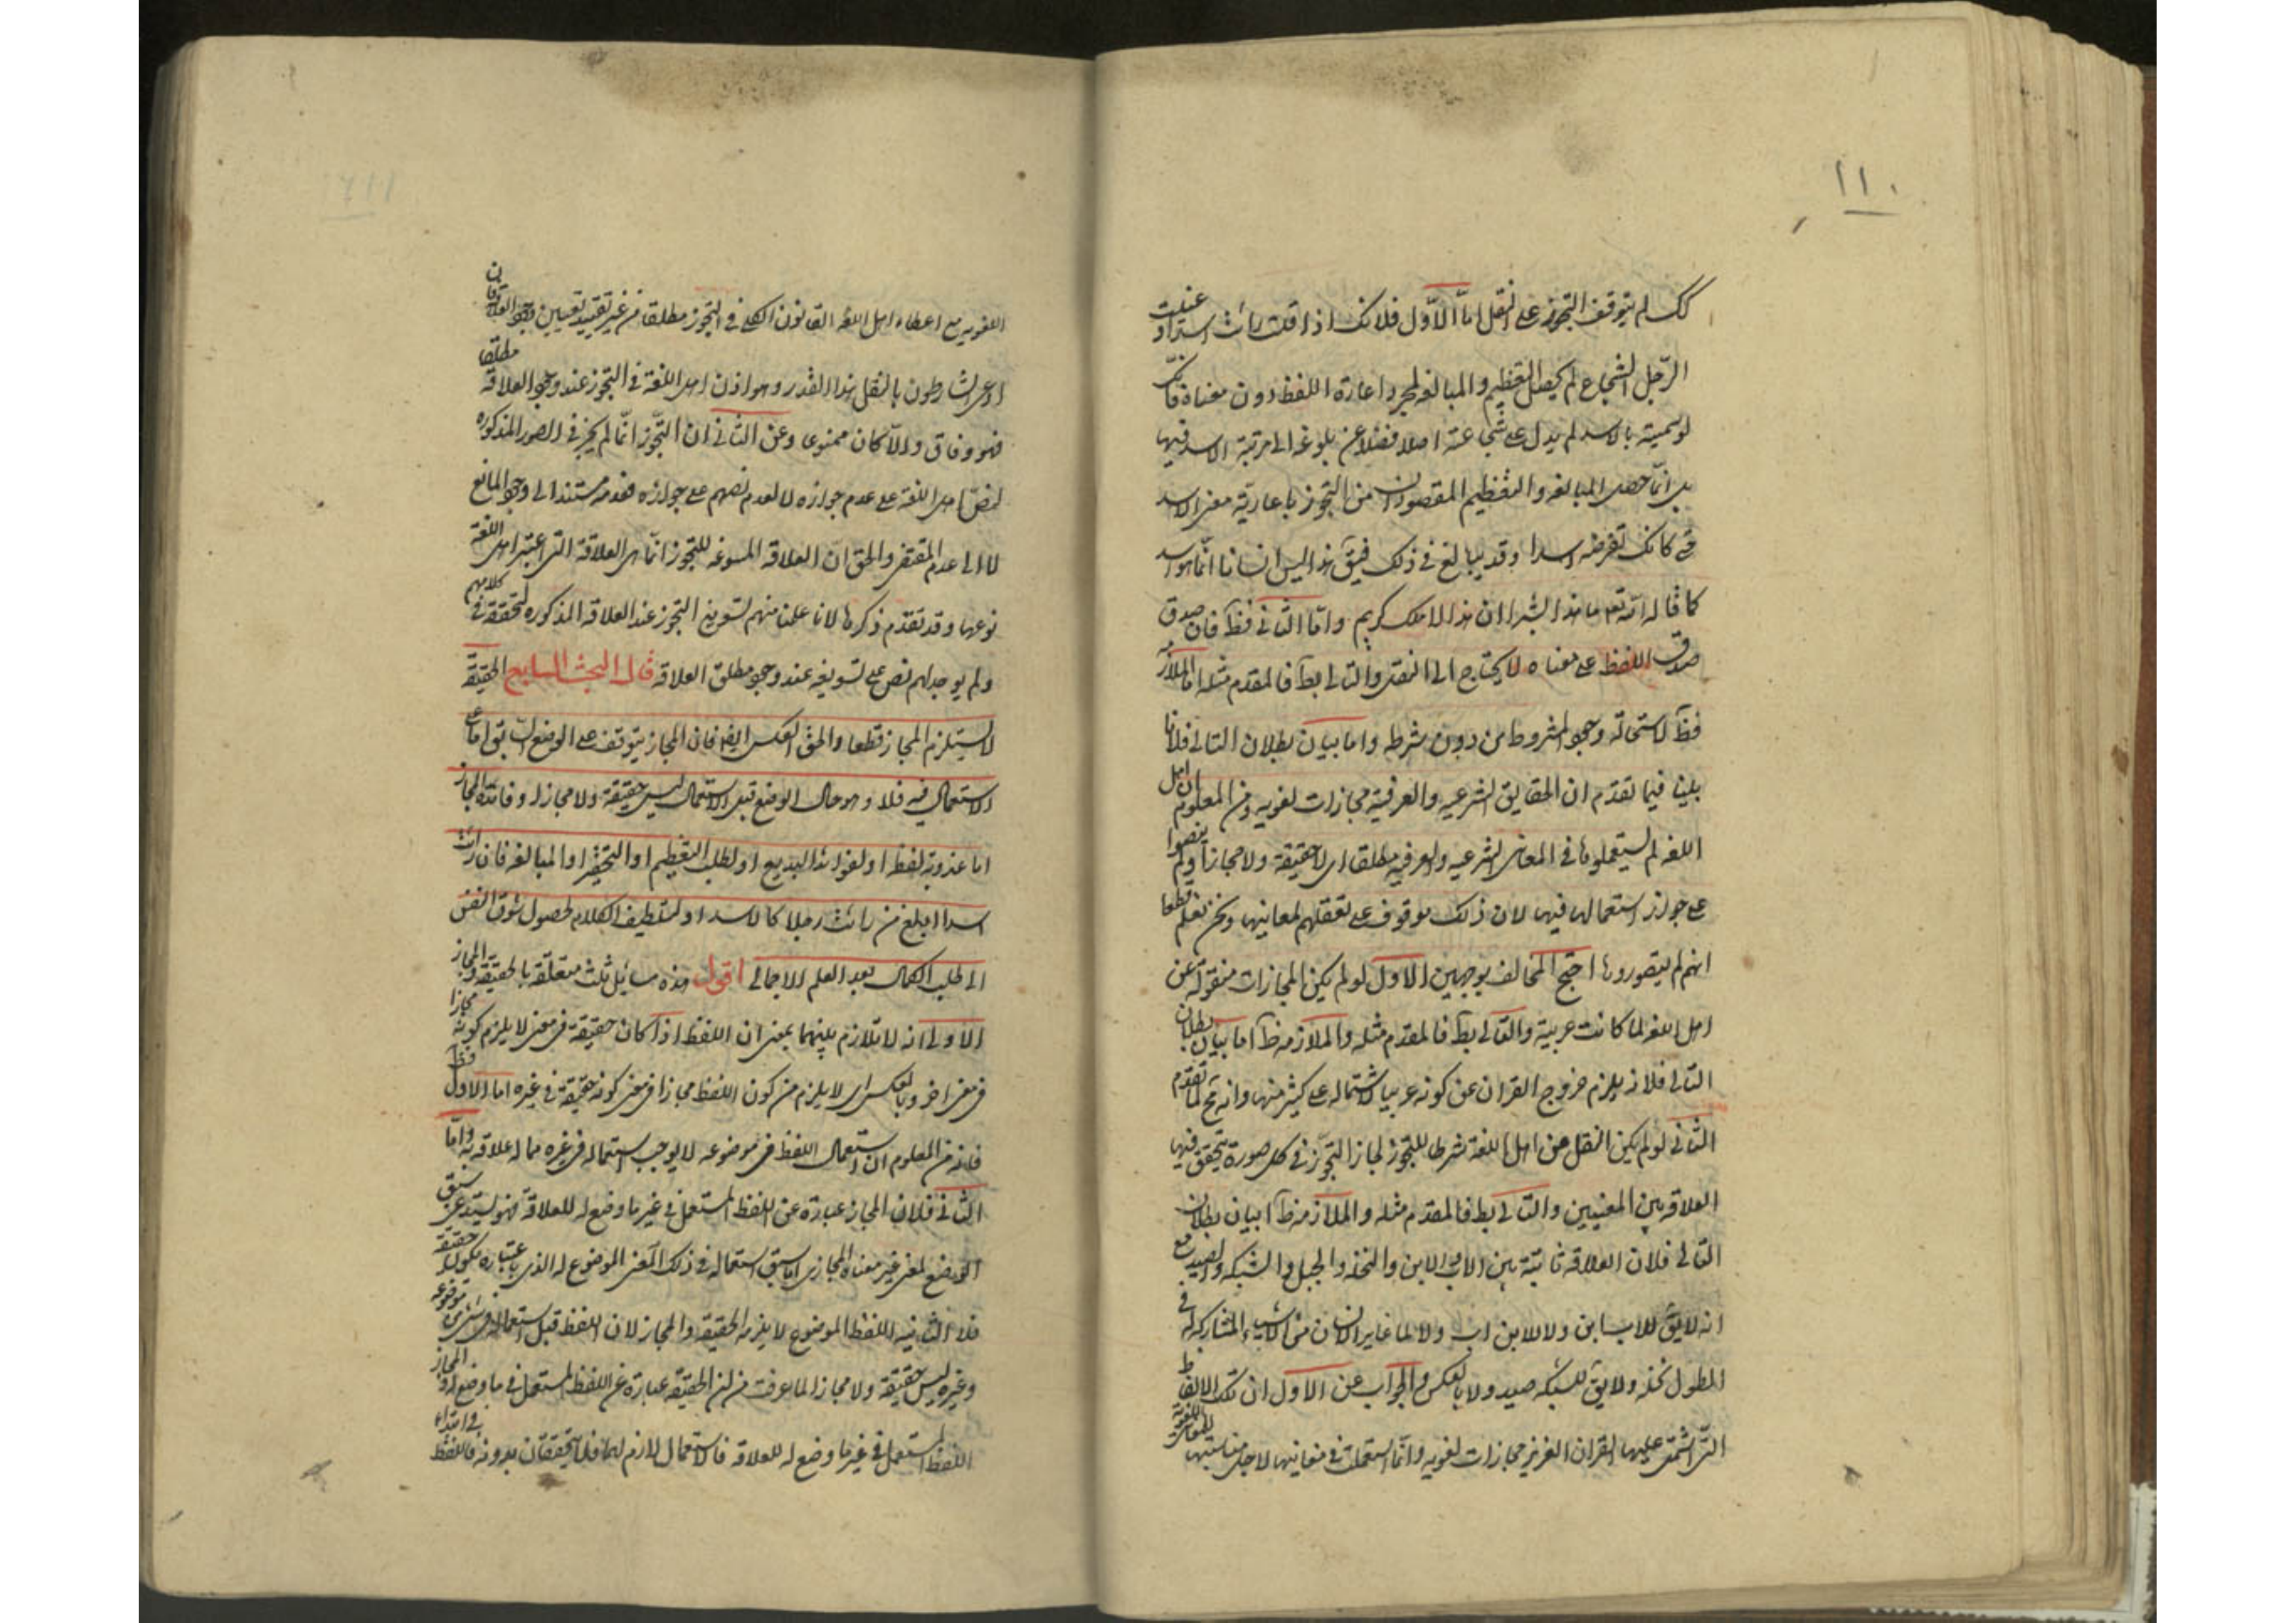 ١١٠
كك لم يتوقف التجوز على النقل اما الاول فلانك اذا قلت رايت اسدا وعنيت
الرجل الشجاع لم يحصل التعظيم والمبالغه لمجرد اعارة اللفظ دون معناه فانك
لو سميته بالاسد لم يدل على شجاعته اصلا فضلا عن بلوغه الى مرتبة الاسد فيها
بل انما حصل المبالغه والتعظيم المقصودان من التجوز باعارية معنى الاسد
حتى كانك تفرضه اسدا وقد يبالغ في ذلك فيق هذا ليس انسانا انما هو اسد
كما قال الله تعه ما هذا بشرا ان هذا الا ملك كريم واما الثاني فظ فان صدق
صدق اللفظ على معناه لا يحتاج الى النقل والتالى بط فالمقدم مثله اما الملازمه
فظ لاستحالة وجود المشروط من دون شرطه واما بيان بطلان التالى فلانا
بلينا فيما تقدم ان الحقايق الشرعيه والعرفية مجازات لغويه ومن المعلوم ان اهل
اللغه لم يستعملوها في المعانى الشرعيه والعرفيه مطلقا اى لا حقيقة ولا مجازا ولم ينصوا
على جواز استعمالها فيها لان ذلك موقوف على تعقلهم لمعانيها ونحن نعلم قطعا
انهم لم يتصوروها احتج المخالف بوجهين الاول لو لم يكن المجازات منقولة عن
اهل اللغه لما كانت عربية والتالى بط فالمقدم مثله والملازمه ظ اما بيان بطلان
التالى فلانه يلزم خروج القران عن كونه عربيا لاشتماله على كثير منها وانه مح لما تقدم
الثانى لو لم يكن النقل من اهل اللغة شرطا للتجوز لجاز التجوز في كل صورة يتحقق فيها
العلاقه بين المعنيين والتالى بط فالمقدم مثله والملازمه ظ اما بيان بطلان
التالى فلان العلاقه ثابتة بين الاب والابن والنخله والجبل والشبكه والصيد مع
انه لا يق للاب ابن ولا للابن اب ولا لما غاير الانسان من الاشياء المشاركه له في
الطول نخله ولا يق للشبكه صيد ولا بالعكس والجواب عن الاول ان تلك الالفاظ
التى اشتمل عليها القران العزيز مجازات لغويه وانما استعملت في معانيها لاجل مناسبتها للمعانى اللغوية
١١١
اللغويه مع اعطاء اهل اللغه القانون الكلى في التجوز مطلقا من غير تقييد بتعيين وجود العلاقة فان
ادعى الشارطون بالنقل هذا القدر وهو اذن اهل اللغة في التجوز عند وجود العلاقة مطلقا
فهو وفاق والا كان ممنوعا وعن الثانى ان التجوز انما لم يجز في الصور المذكوره
لنص اهل اللغة على عدم جوازه لا لعدم نصهم على جوازه فعدمه مستندا الى وجود المانع
لا الى عدم المقتضى والحق ان العلاقه المسوغه للتجوز انما هى العلاقة التى اعتبر اهل اللغه
نوعها وقد تقدم ذكرها لانا علمنا منهم تسويغ التجوز عند العلاقه المذكوره لتحققه في كلامهم
ولم يوجد لهم نص على تسويغه عند وجود مطلق العلاقه قال البحث السابع الحقيقة
لا يستلزم المجاز قطعا والحق العكس ايضا فان المجاز يتوقف على الوضع السابق اما على
الاستعمال فيه فلا وهو حال الوضع قبل الاستعمال ليس حقيقة ولا مجازا وفائدة المجاز
اما عذوبة لفظه او لفوائد البديع او لطلب التعظيم او التحقير او المبالغه فان رايت
اسدا ابلغ من رايت رجلا كالاسد او لتلطيف الكلام لحصول شوق النفس
الى طلب الكمال بعد العلم الاجمالى اقول هذه مسايل ثلث متعلقة بالحقيقه والمجاز
الاولى انه لا تلازم بينهما بمعنى ان اللفظ اذا كان حقيقة في معنى لا يلزم كونه مجازا
في معنى اخر وبالعكس اى لا يلزم من كون اللفظ مجازا في معنى كونه حقيقة في غيره اما الاول فظ
فلانه من المعلوم ان استعمال اللفظ في موضوعه لا يوجب استعماله في غيره مما له علاقه به واما
الثانى فلان المجاز عبارة عن اللفظ المستعمل في غير ما وضع له للعلاقة فهو يستدعى سبق
الوضع لمعنى غير معناه المجازى اما سبق استعماله في ذلك المعنى الموضوع له الذى باعتباره يكون حقيقة
فلا الثانيه اللفظ الموضوع لا يلزمه الحقيقه والمجاز لان اللفظ قبل استعماله في شئ من موضوعه
وغيره ليس حقيقة ولا مجازا لما عرفت من ان الحقيقه عبارة عن اللفظ المستعمل في ما وضع له والمجاز
اللفظ المستعمل في غير ما وضع له للعلاقه فالاستعمال لازم لهما فلا يتحققان بدونه فاللفظ في ابتداء